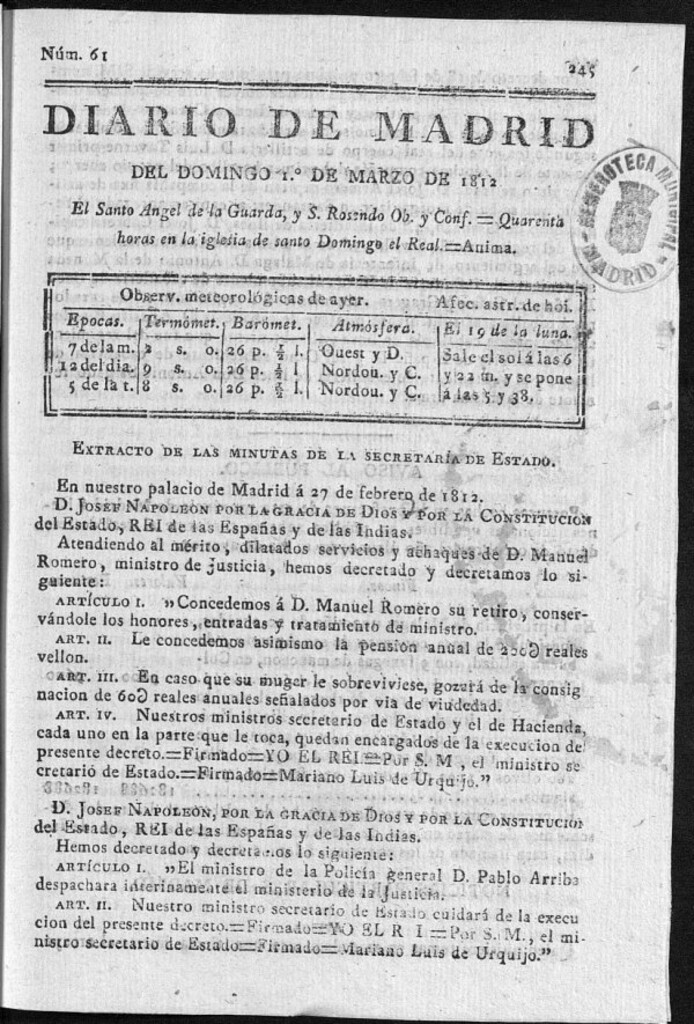 Núm. 61
245
DIARIO DE MADRID
DEL DOMINGO 1.º DE MARZO DE 1812
HEMEROTECA MUNICIPAL
MADRID
El Santo Angel de la Guarda, y S. Rosendo Ob. y Conf. = Quarenta
horas en la iglesia de santo Domingo el Real.=Anima.
Observ. meteorológicas de ayer. Afec. astr. de hoi.
Epocas. Termómet. Barómet. Atmósfera. El 19 de la luna.
7 de la m. 2 s. 0. 26 p. ½ l. Ouest y D. Sale el sol á las 6
12 del dia. 9 s. 0. 26 p. ½ l. Nordou. y C. y 22 m. y se pone
5 de la t. 8 s. 0. 26 p. ½ l. Nordou. y C. á las 5 y 38.
EXTRACTO DE LAS MINUTAS DE LA SECRETARÍA DE ESTADO.
En nuestro palacio de Madrid á 27 de febrero de 1812.
D. JOSEF NAPOLEON POR LA GRACIA DE DIOS Y POR LA CONSTITUCION
del Estado, REI de las Españas y de las Indias.
Atendiendo al mérito, dilatados servicios y achaques de D. Manuel
Romero, ministro de justicia, hemos decretado y decretamos lo si-
guiente:
ARTÍCULO I. "Concedemos á D. Manuel Romero su retiro, conser-
vándole los honores, entradas y tratamiento de ministro.
ART. II. Le concedemos asimismo la pensión anual de reales
vellon.
ART. III. En caso que su muger le sobreviviese, gozará de la consig
nacion de 60Ə reales anuales señalados por via de viudedad.
ART. IV. Nuestros ministros secretario de Estado y el de Hacienda,
cada uno en la parte que le toca, quedan encargados de la execucion del
presente decreto.=Firmado=YO EL REI.=Por S. M., el ministro se
cretario de Estado.=Firmado=Mariano Luis de Urquijo."
D. JOSEF NAPOLEON, POR LA GRACIA DE DIOS Y POR LA CONSTITUCION
del Estado, REI de las Españas y de las Indias.
Hemos decretado y decretamos lo siguiente:
ARTÍCULO I. "El ministro de la Policía general D. Pablo Arriba
despachara interinamente el ministerio de la Justicia.
ART. II. Nuestro ministro secretario de Estado cuidará de la execu
cion del presente decreto.=Firmado=YO EL R I.=Por S. M., el mi-
nistro secretario de Estado=Firmado=Mariano Luis de Urquijo."